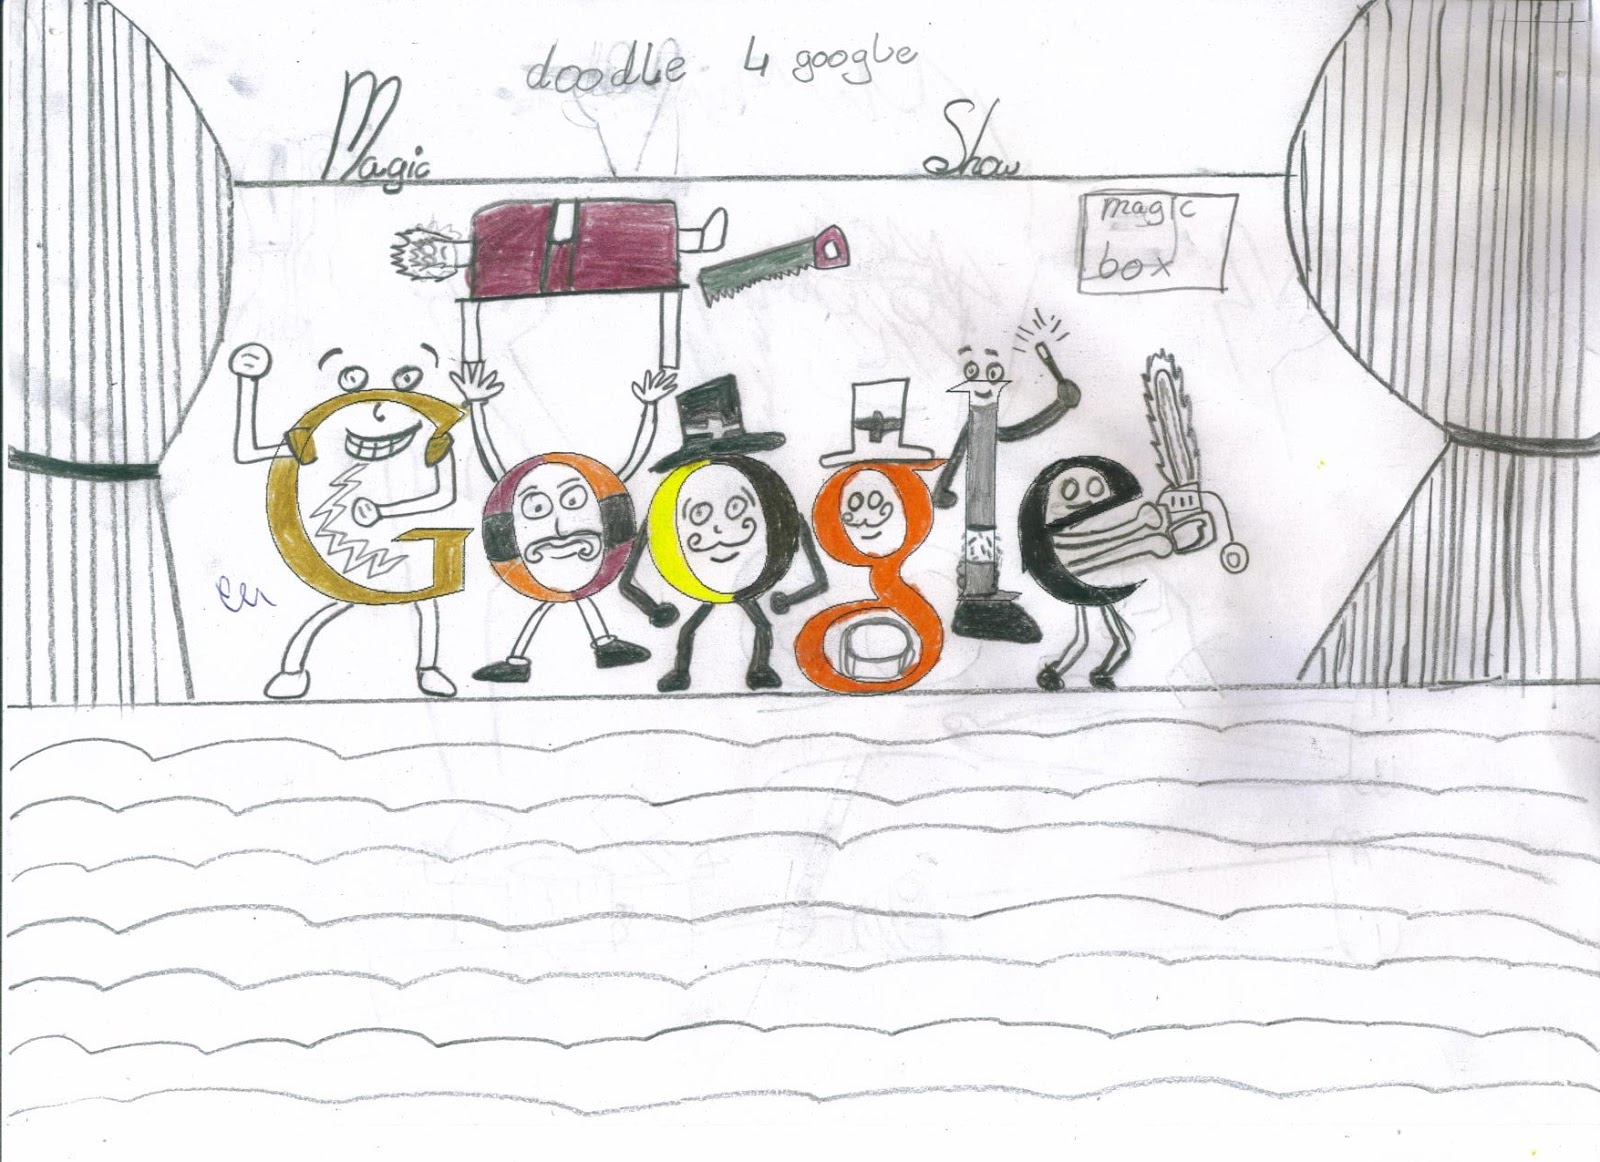 doodle 4 google
Magic Show
magic
box
Google